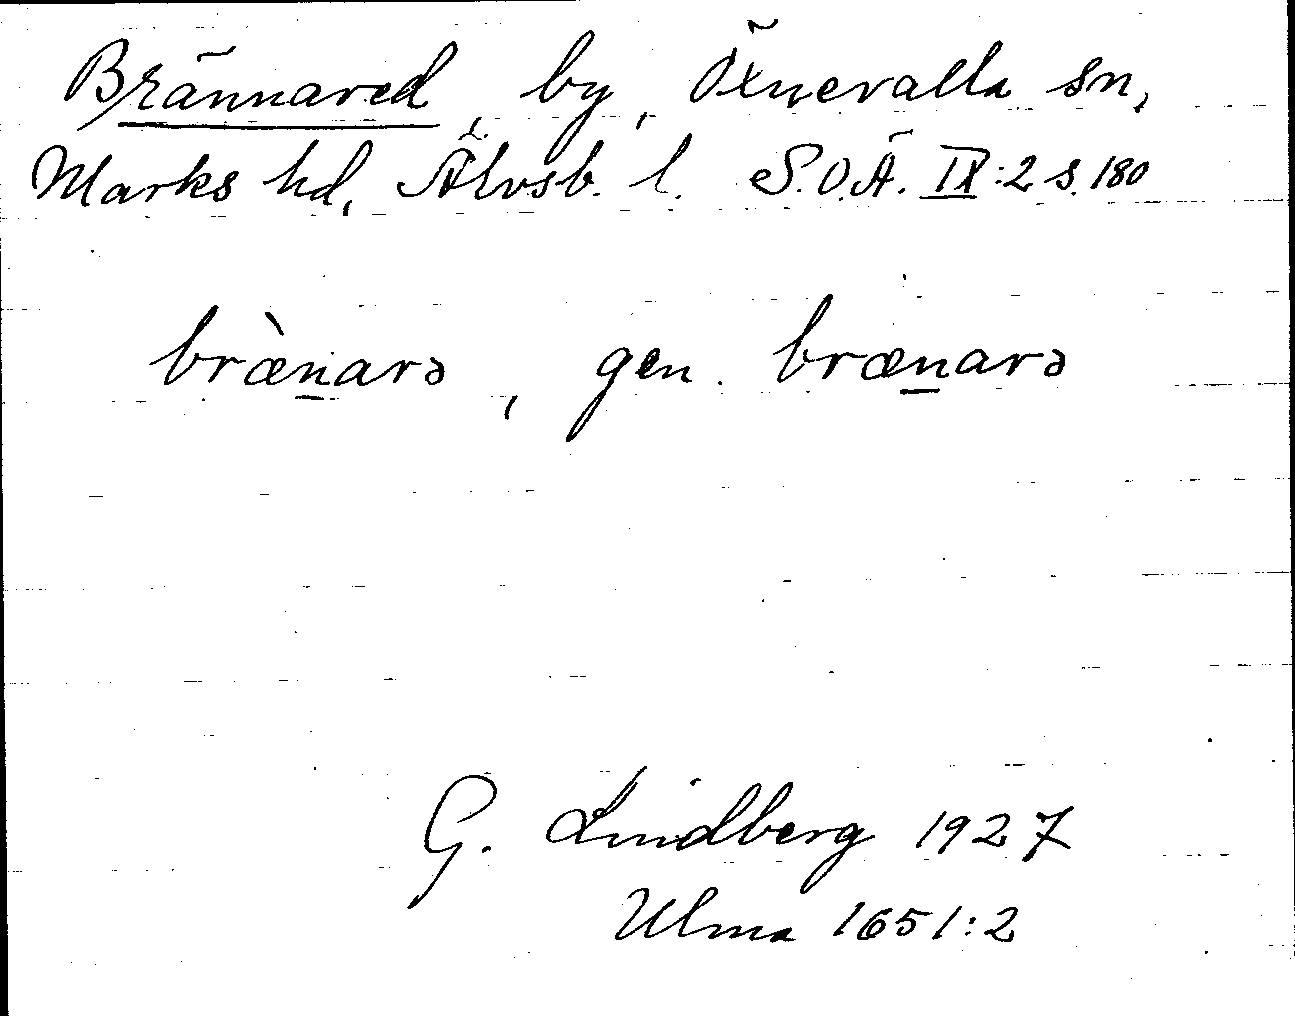 Brännared, by, Öxnevalla sn,
Marks hd, Älvsb. l. S.O.Ä. IX:2 s. 180
bræ̀n̲arə, gen. bræn̲arə
G. Lindberg 1927
Ulma 1651:2